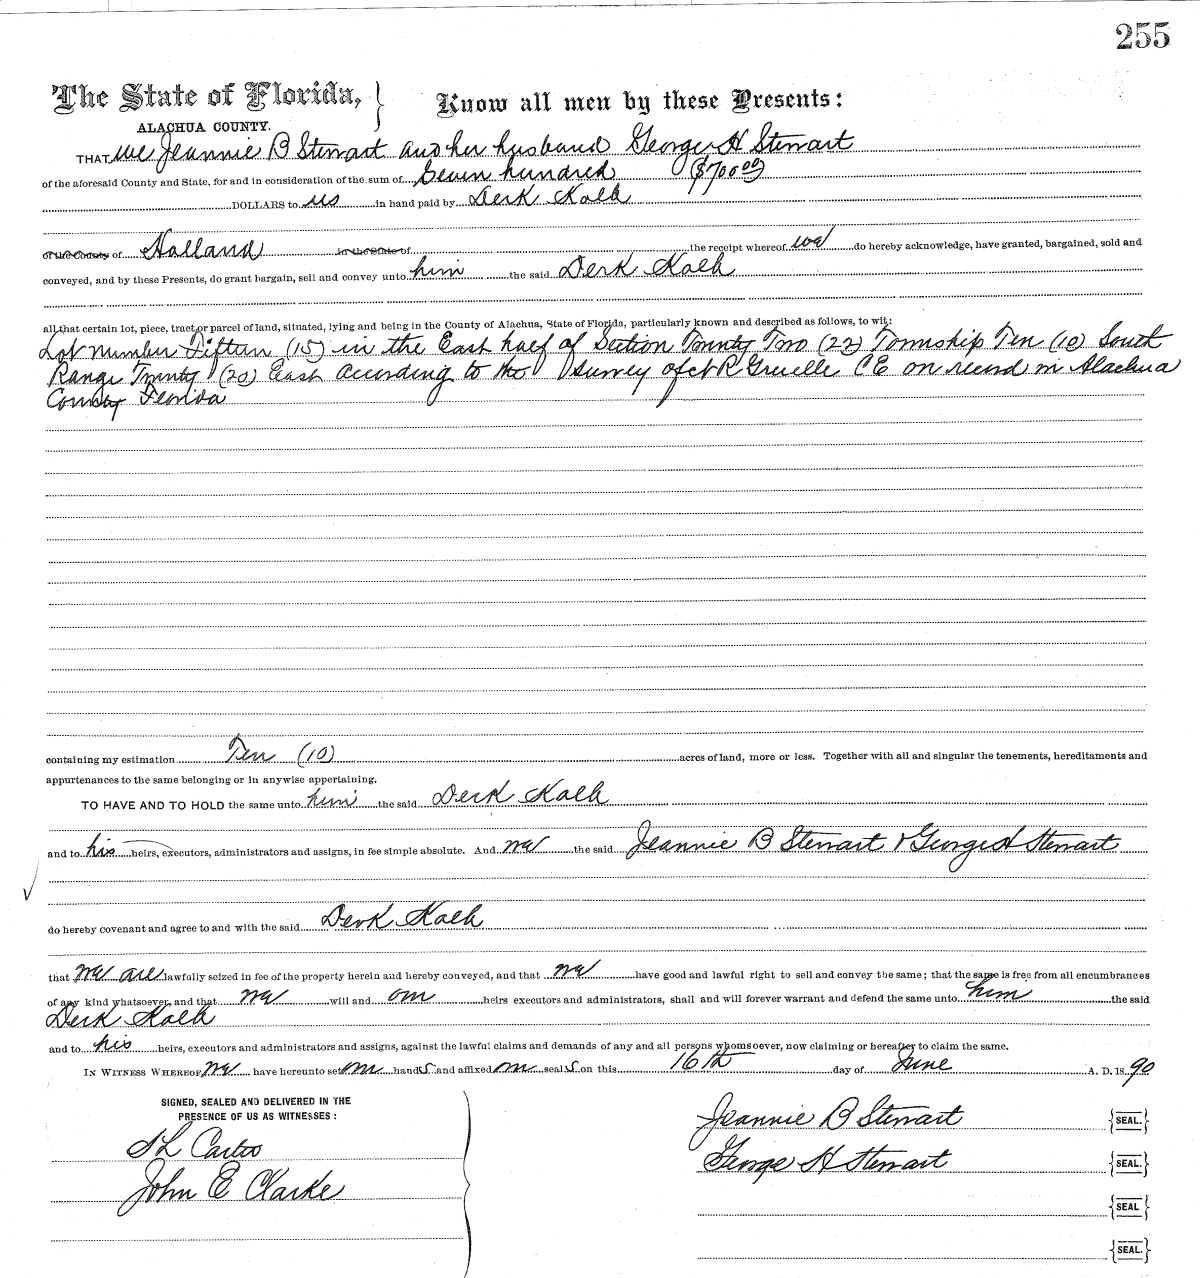 255
The State of Florida, } Know all men by these Presents:
ALACHUA COUNTY.
THAT we Jeannie B Stewart and her husband George H Stewart
of the aforesaid County and State, for and in consideration of the sum of Seven hundred ($700 00)
DOLLARS to us in hand paid by Derk Kalk
of the County of Holland in the State of the receipt whereof we do hereby acknowledge, have granted, bargained, sold and
conveyed, and by these Presents, do grant bargain, sell and convey unto him the said Derk Kalk
all that certain lot, piece, tract or parcel of land, situated, lying and being in the County of Alachua, State of Florida, particularly known and described as follows, to wit:
Lot number Fifteen (15) in the East half of Section Twenty Two (22) Township Ten (10) South
Range Twenty (20) East according to the survey of Gruelle CE on record in Alachua
County Florida
containing my estimation Ten (10) acres of land, more or less. Together with all and singular the tenements, hereditaments and
appurtenances to the same belonging or in anywise appertaining.
TO HAVE AND TO HOLD the same unto him the said Derk Kalk
and to his heirs, executors, administrators and assigns, in fee simple absolute. And we the said Jeannie B Stewart & George H Stewart
do hereby covenant and agree to and with the said Derk Kalk
that we are lawfully seized in fee of the property herein and hereby conveyed, and that we have good and lawful right to sell and convey the same; that the same is free from all encumbrances
of any kind whatsoever, and that we will and our heirs executors and administrators, shall and will forever warrant and defend the same unto him the said
Derk Kalk
and to his heirs, executors and administrators and assigns, against the lawful claims and demands of any and all persons whomsoever, now claiming or hereafter to claim the same.
IN WITNESS WHEREOF we have hereunto set our hands and affixed our seals on this 16th day of June A. D. 1890
SIGNED, SEALED AND DELIVERED IN THE
PRESENCE OF US AS WITNESSES:
S L Carter
John E Clarke
Jeannie B Stewart {SEAL.}
George H Stewart {SEAL.}
{SEAL}
{SEAL.}